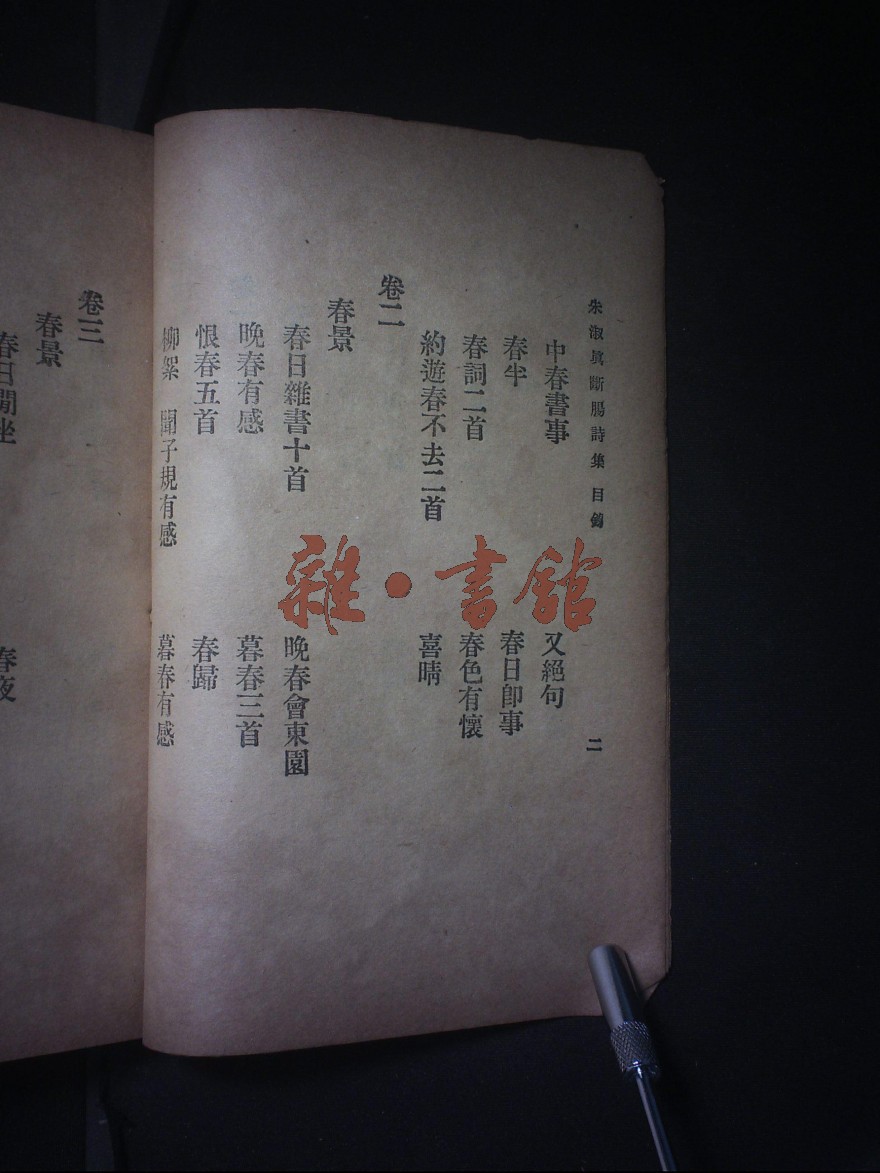 朱淑真斷腸詩集 目錄
二
中春書事 又絕句
春半 春日卽事
春詞二首 春色有懷
約遊春不去二首 喜晴
卷二
春景
春日雜書十首 晚春會東園
晚春有感 暮春三首
恨春五首 春歸
柳絮 聞子規有感 暮春有感
卷三
春景
春日閒坐 春夜
雜·書館